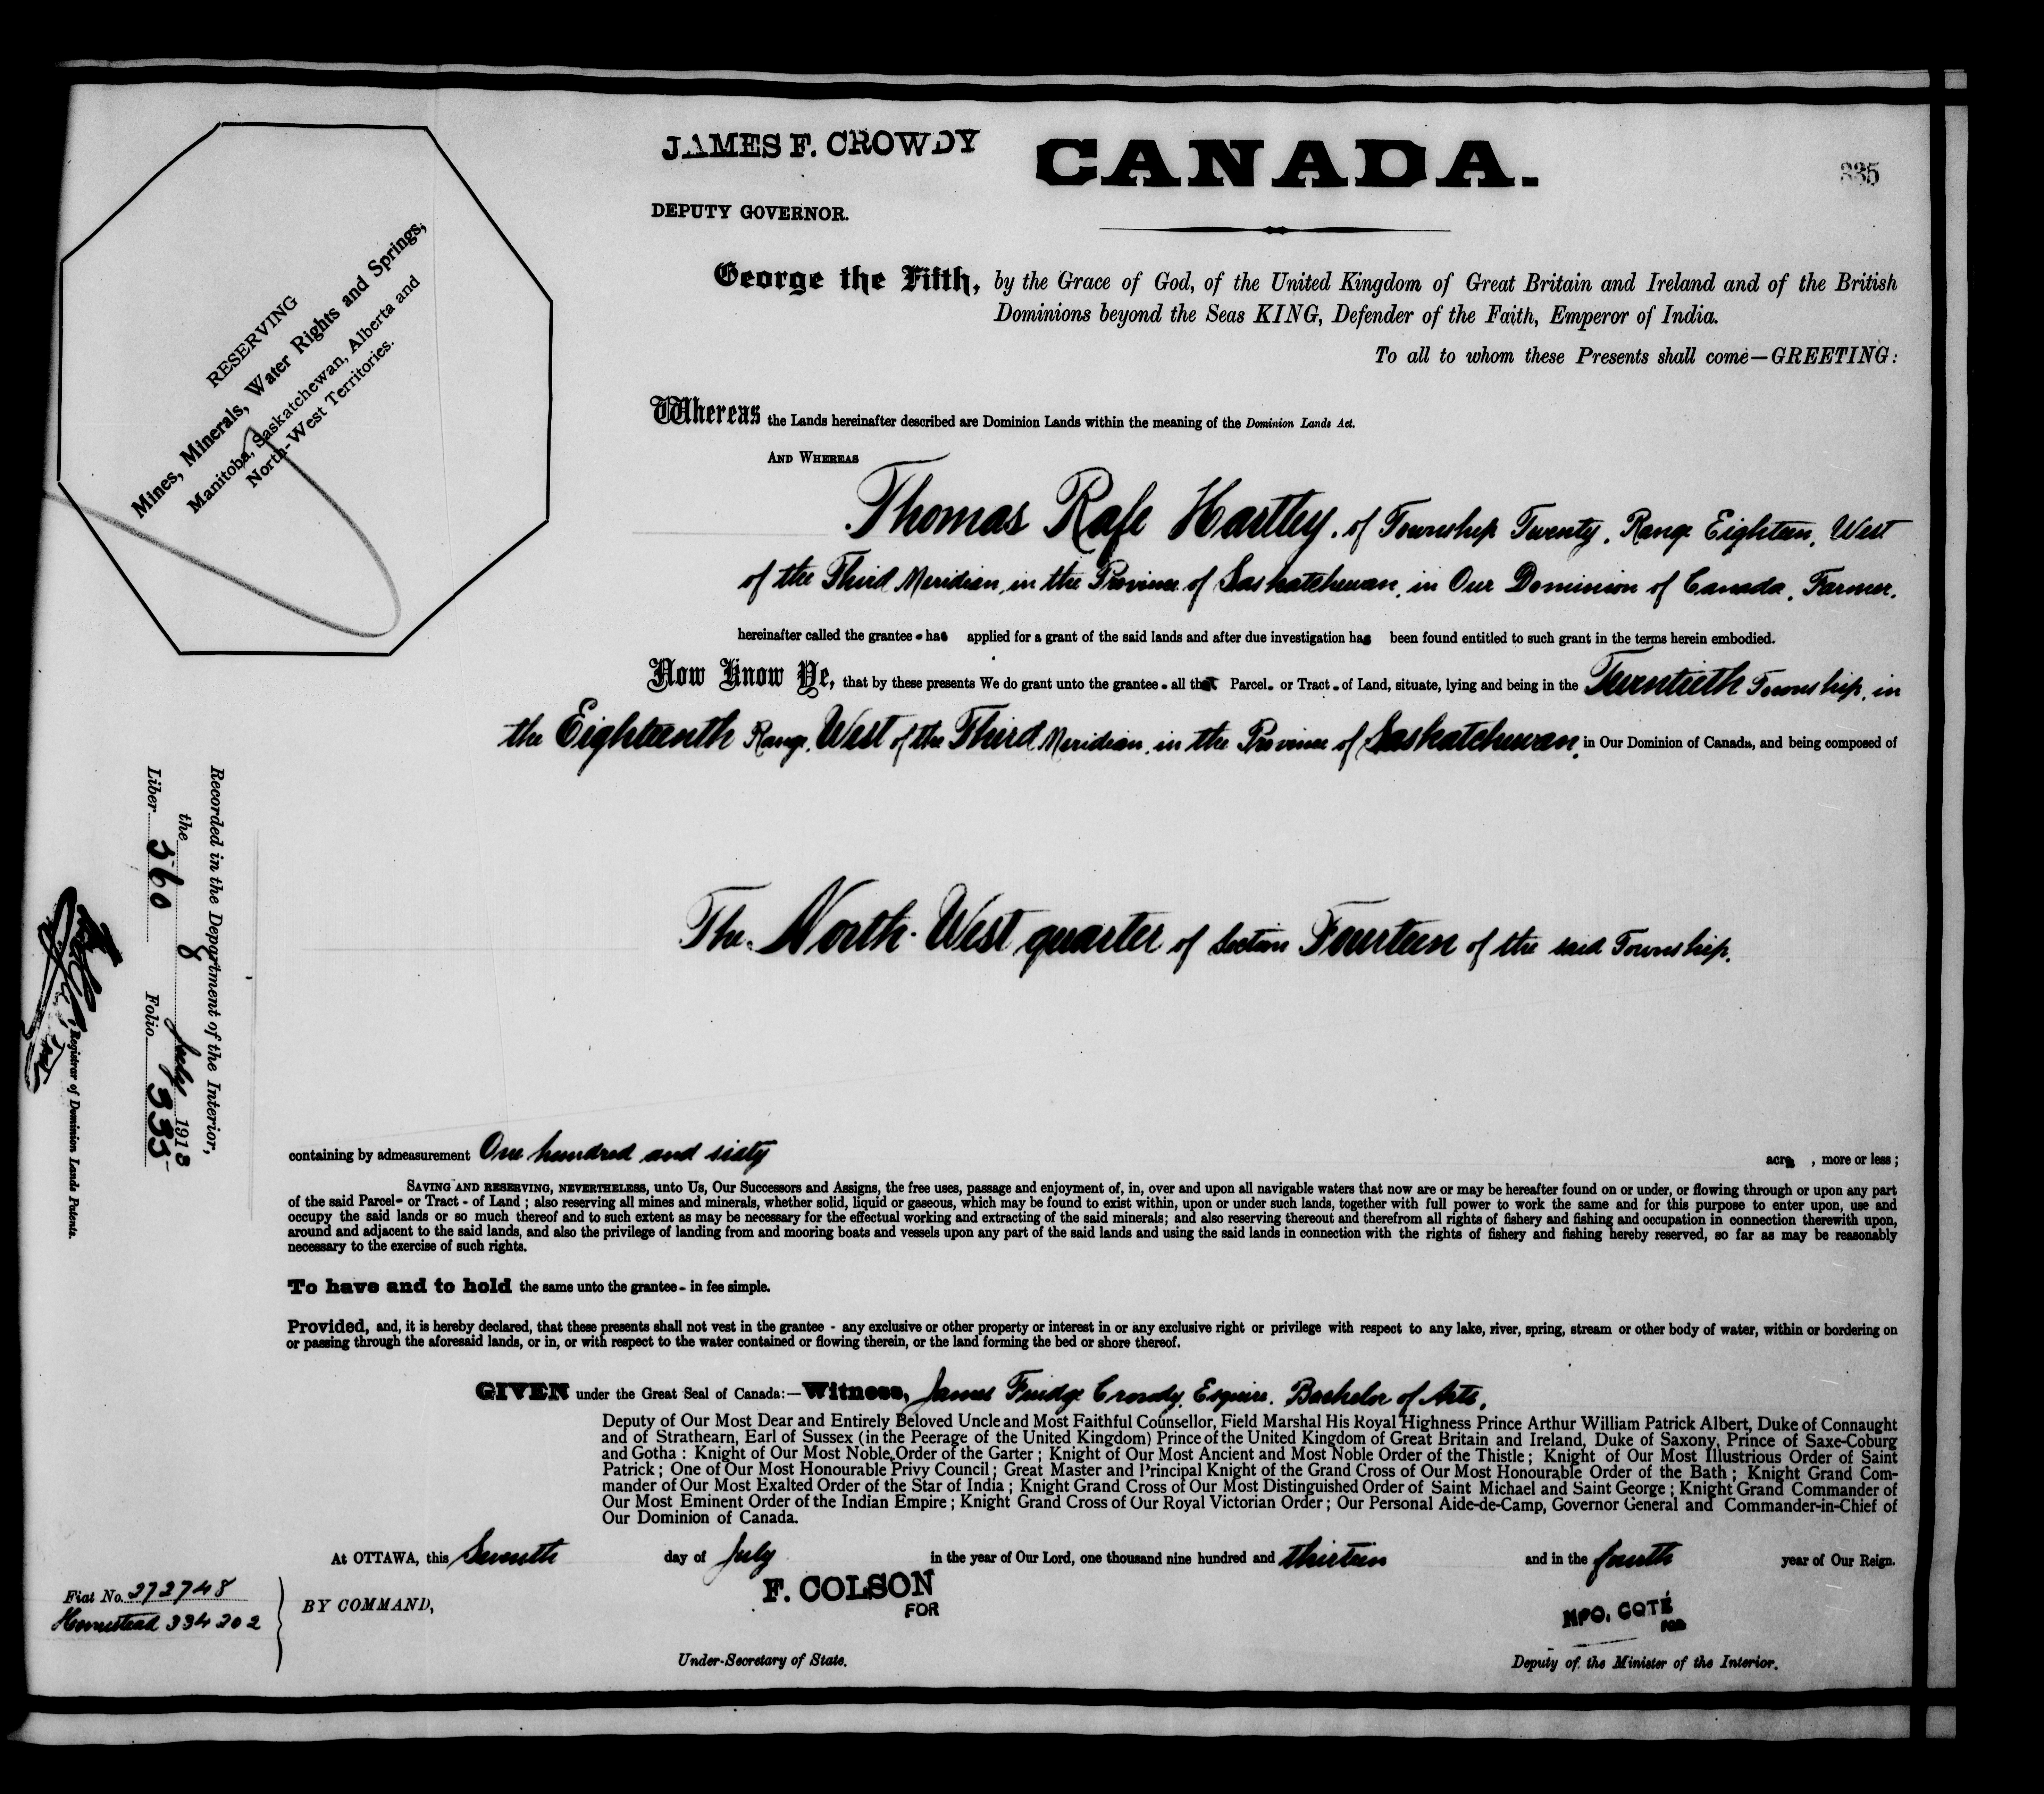 JAMES F. CROWDY
CANADA.
335
DEPUTY GOVERNOR.
George the Fifth, by the Grace of God, of the United Kingdom of Great Britain and Ireland and of the British
Dominions beyond the Seas KING, Defender of the Faith, Emperor of India.
To all to whom these Presents shall come—GREETING:
RESERVING
Mines, Minerals, Water Rights and Springs,
Manitoba, Saskatchewan, Alberta and
North-West Territories.
Whereas the Lands hereinafter described are Dominion Lands within the meaning of the Dominion Lands Act.
AND WHEREAS
Thomas Rafe Hartley, of Township Twenty, Range Eighteen, West
of the Third Meridian, in the Province of Saskatchewan, in Our Dominion of Canada, Farmer.
hereinafter called the grantee - has applied for a grant of the said lands and after due investigation has been found entitled to such grant in the terms herein embodied.
Now Know Ye, that by these presents We do grant unto the grantee - all that Parcel - or Tract - of Land, situate, lying and being in the Twentieth Township, in
the Eighteenth Range, West of the Third Meridian, in the Province of Saskatchewan, in Our Dominion of Canada, and being composed of
The North-West quarter of Section Fourteen of the said Township.
Recorded in the Department of the Interior,
the 8 July 1913
Liber 560 Folio 335
Registrar of Dominion Lands Patents.
containing by admeasurement One hundred and sixty acres, more or less;
SAVING AND RESERVING, NEVERTHELESS, unto Us, Our Successors and Assigns, the free uses, passage and enjoyment of, in, over and upon all navigable waters that now are or may be hereafter found on or under, or flowing through or upon any part
of the said Parcel- or Tract - of Land; also reserving all mines and minerals, whether solid, liquid or gaseous, which may be found to exist within, upon or under such lands, together with full power to work the same and for this purpose to enter upon, use and
occupy the said lands or so much thereof and to such extent as may be necessary for the effectual working and extracting of the said minerals; and also reserving thereout and therefrom all rights of fishery and fishing and occupation in connection therewith upon,
around and adjacent to the said lands, and also the privilege of landing from and mooring boats and vessels upon any part of the said lands and using the said lands in connection with the rights of fishery and fishing hereby reserved, so far as may be reasonably
necessary to the exercise of such rights.
To have and to hold the same unto the grantee - in fee simple.
Provided, and, it is hereby declared, that these presents shall not vest in the grantee - any exclusive or other property or interest in or any exclusive right or privilege with respect to any lake, river, spring, stream or other body of water, within or bordering on
or passing through the aforesaid lands, or in, or with respect to the water contained or flowing therein, or the land forming the bed or shore thereof.
GIVEN under the Great Seal of Canada:—Witness, James Fuidge Crowdy, Esquire, Bachelor of Arts,
Deputy of Our Most Dear and Entirely Beloved Uncle and Most Faithful Counsellor, Field Marshal His Royal Highness Prince Arthur William Patrick Albert, Duke of Connaught
and of Strathearn, Earl of Sussex (in the Peerage of the United Kingdom) Prince of the United Kingdom of Great Britain and Ireland, Duke of Saxony, Prince of Saxe-Coburg
and Gotha: Knight of Our Most Noble Order of the Garter; Knight of Our Most Ancient and Most Noble Order of the Thistle; Knight of Our Most Illustrious Order of Saint
Patrick; One of Our Most Honourable Privy Council; Great Master and Principal Knight of the Grand Cross of Our Most Honourable Order of the Bath; Knight Grand Com-
mander of Our Most Exalted Order of the Star of India; Knight Grand Cross of Our Most Distinguished Order of Saint Michael and Saint George; Knight Grand Commander of
Our Most Eminent Order of the Indian Empire; Knight Grand Cross of Our Royal Victorian Order; Our Personal Aide-de-Camp, Governor General and Commander-in-Chief of
Our Dominion of Canada.
At OTTAWA, this Seventh day of July in the year of Our Lord, one thousand nine hundred and thirteen and in the fourth year of Our Reign.
Fiat No. 272748
Homestead 334202
BY COMMAND,
F. COLSON
FOR
Under-Secretary of State.
NPO. COTÉ
FOR
Deputy of the Minister of the Interior.